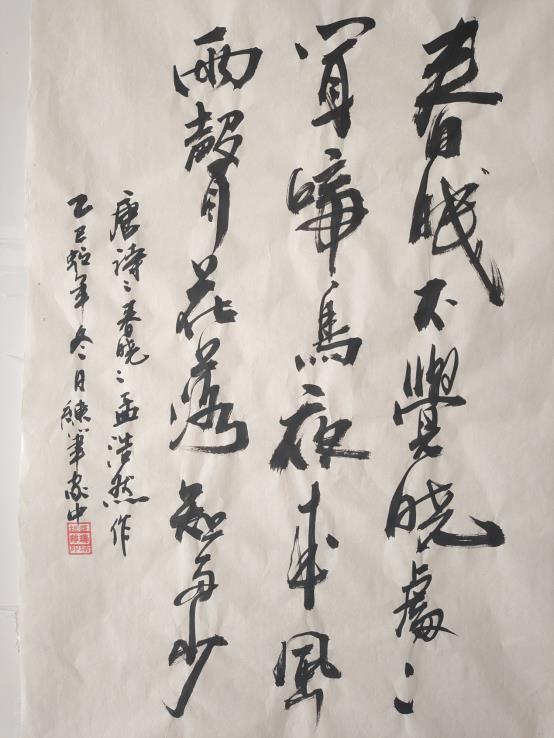 春眠不覺曉處〻
聞啼鳥夜來風
雨聲花落知多少
唐詩〻春曉〻孟浩然作
乙巳蛇年冬月練筆家中